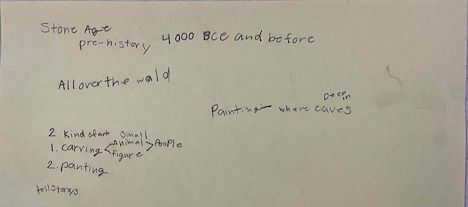 Stone Age
pre-history 4000 BCE and before
All over the wald
Deep in
Painting where caves
2 kind of art small
1. carving Animal People
figure
2. panting
tell storys